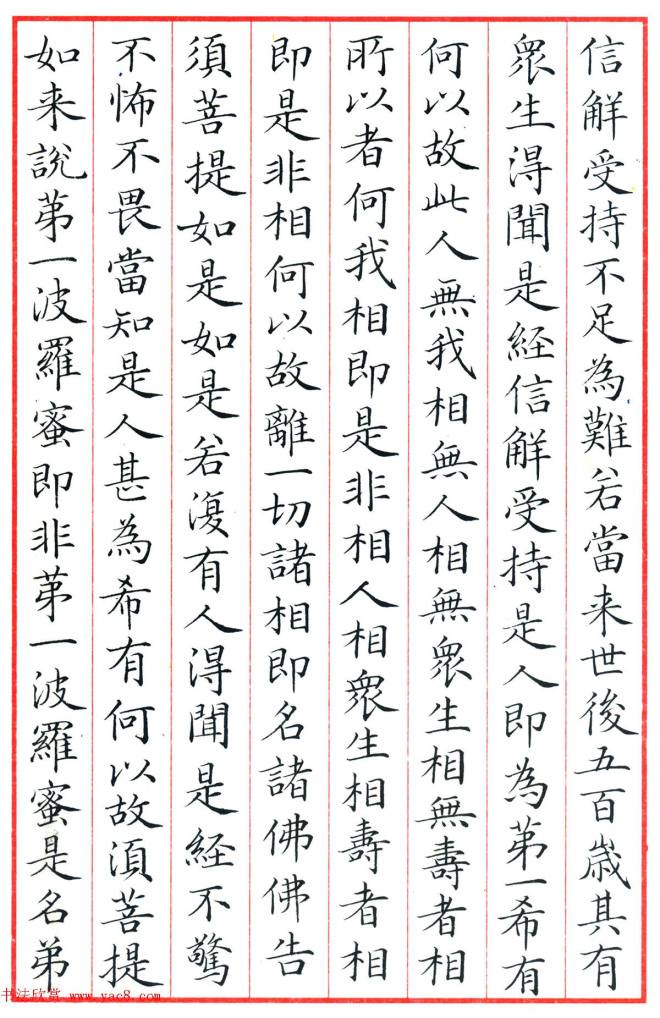 信解受持不足為難若當来世後五百歲其有
眾生得聞是經信解受持是人即為第一希有
何以故此人無我相無人相無眾生相無壽者相
所以者何我相即是非相人相眾生相壽者相
即是非相何以故離一切諸相即名諸佛佛告
須菩提如是如是若復有人得聞是經不驚
不怖不畏當知是人甚為希有何以故須菩提
如来說第一波羅蜜即非第一波羅蜜是名第
书法欣赏 www.yac8.com